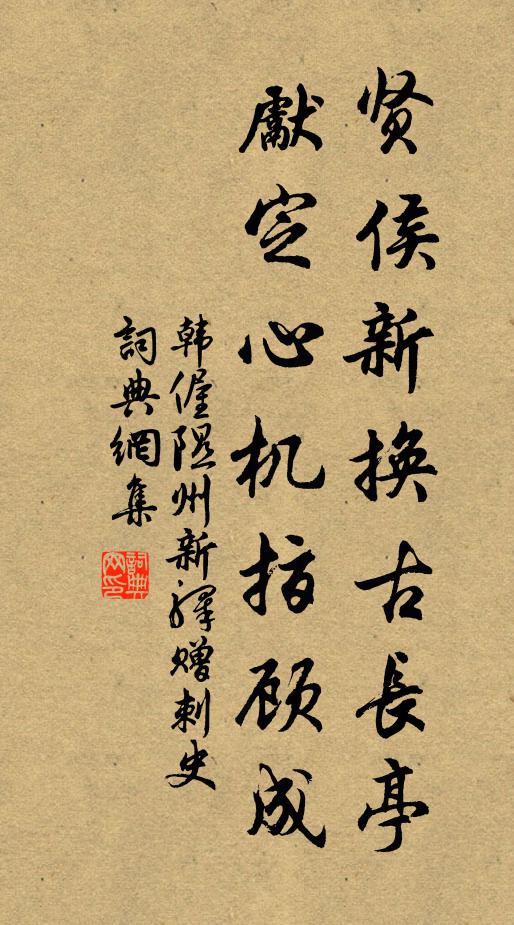 贤侯新换古長亭
獻定心机指顾成
韩偓隰州新驿赠刺史
詞典網集
詞典网印